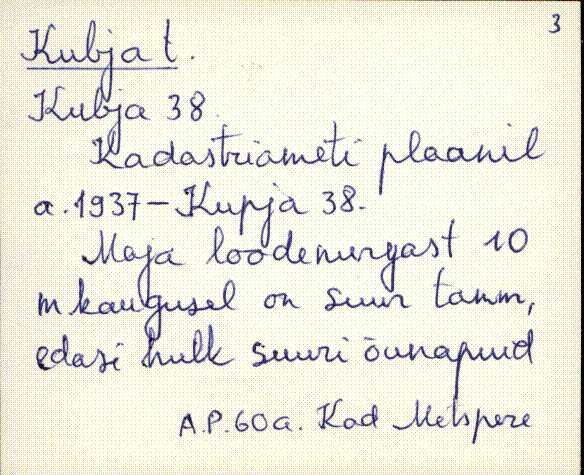 3
Kubja t.
Kubja 38.
Kadastriameti plaanil
a. 1937 – Kupja 38.
Maja loodenurgast 10
m kaugusel on suur tamm,
edasi hulk suuri õunapuid
A.P. 60a. Kad Metspere